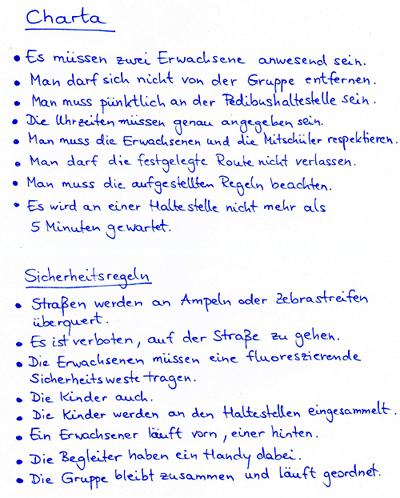 Charta
• Es müssen zwei Erwachsene anwesend sein.
• Man darf sich nicht von der Gruppe entfernen.
• Man muss pünktlich an der Pedibushaltestelle sein.
• Die Uhrzeiten müssen genau angegeben sein.
• Man muss die Erwachsenen und die Mitschüler respektieren.
• Man darf die festgelegte Route nicht verlassen.
• Man muss die aufgestellten Regeln beachten.
• Es wird an einer Haltestelle nicht mehr als
5 Minuten gewartet.
Sicherheitsregeln
• Straßen werden an Ampeln oder Zebrastreifen
überquert.
• Es ist verboten, auf der Straße zu gehen.
• Die Erwachsenen müssen eine fluoreszierende
Sicherheitsweste tragen.
• Die Kinder auch.
• Die Kinder werden an den Haltestellen eingesammelt.
• Ein Erwachsener läuft vorn, einer hinten.
• Die Begleiter haben ein Handy dabei.
• Die Gruppe bleibt zusammen und läuft geordnet.